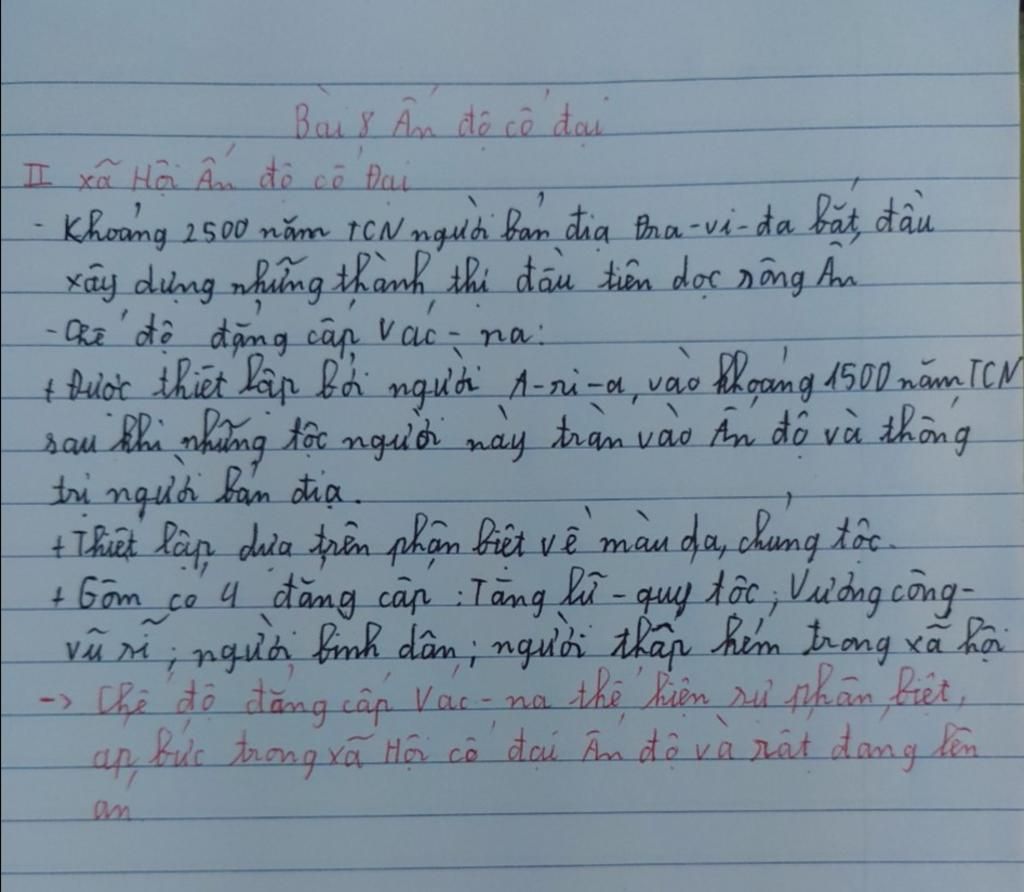 Bài 8 Ấn độ cổ đại
II xã Hội Ấn độ cổ Đại
- Khoảng 2500 năm TCN người bản địa Đra-vi-đa bắt đầu
xây dựng những thành thị đầu tiên dọc sông Ấn
- Chế độ đẳng cấp Vác-na:
+ Được thiết lập bởi người A-ri-a, vào khoảng 1500 năm TCN
sau khi những tộc người này tràn vào Ấn độ và thống
trị người bản địa.
+ Thiết lập dựa trên phân biệt về màu da, chủng tộc.
+ Gồm có 4 đẳng cấp : Tăng lữ - quý tộc ; Vương công -
vũ sĩ ; người bình dân ; người thấp kém trong xã hội
-> Chế độ đẳng cấp Vác-na thể hiện sự phân biệt,
áp bức trong xã Hội cổ đại Ấn độ và rất đáng lên
án